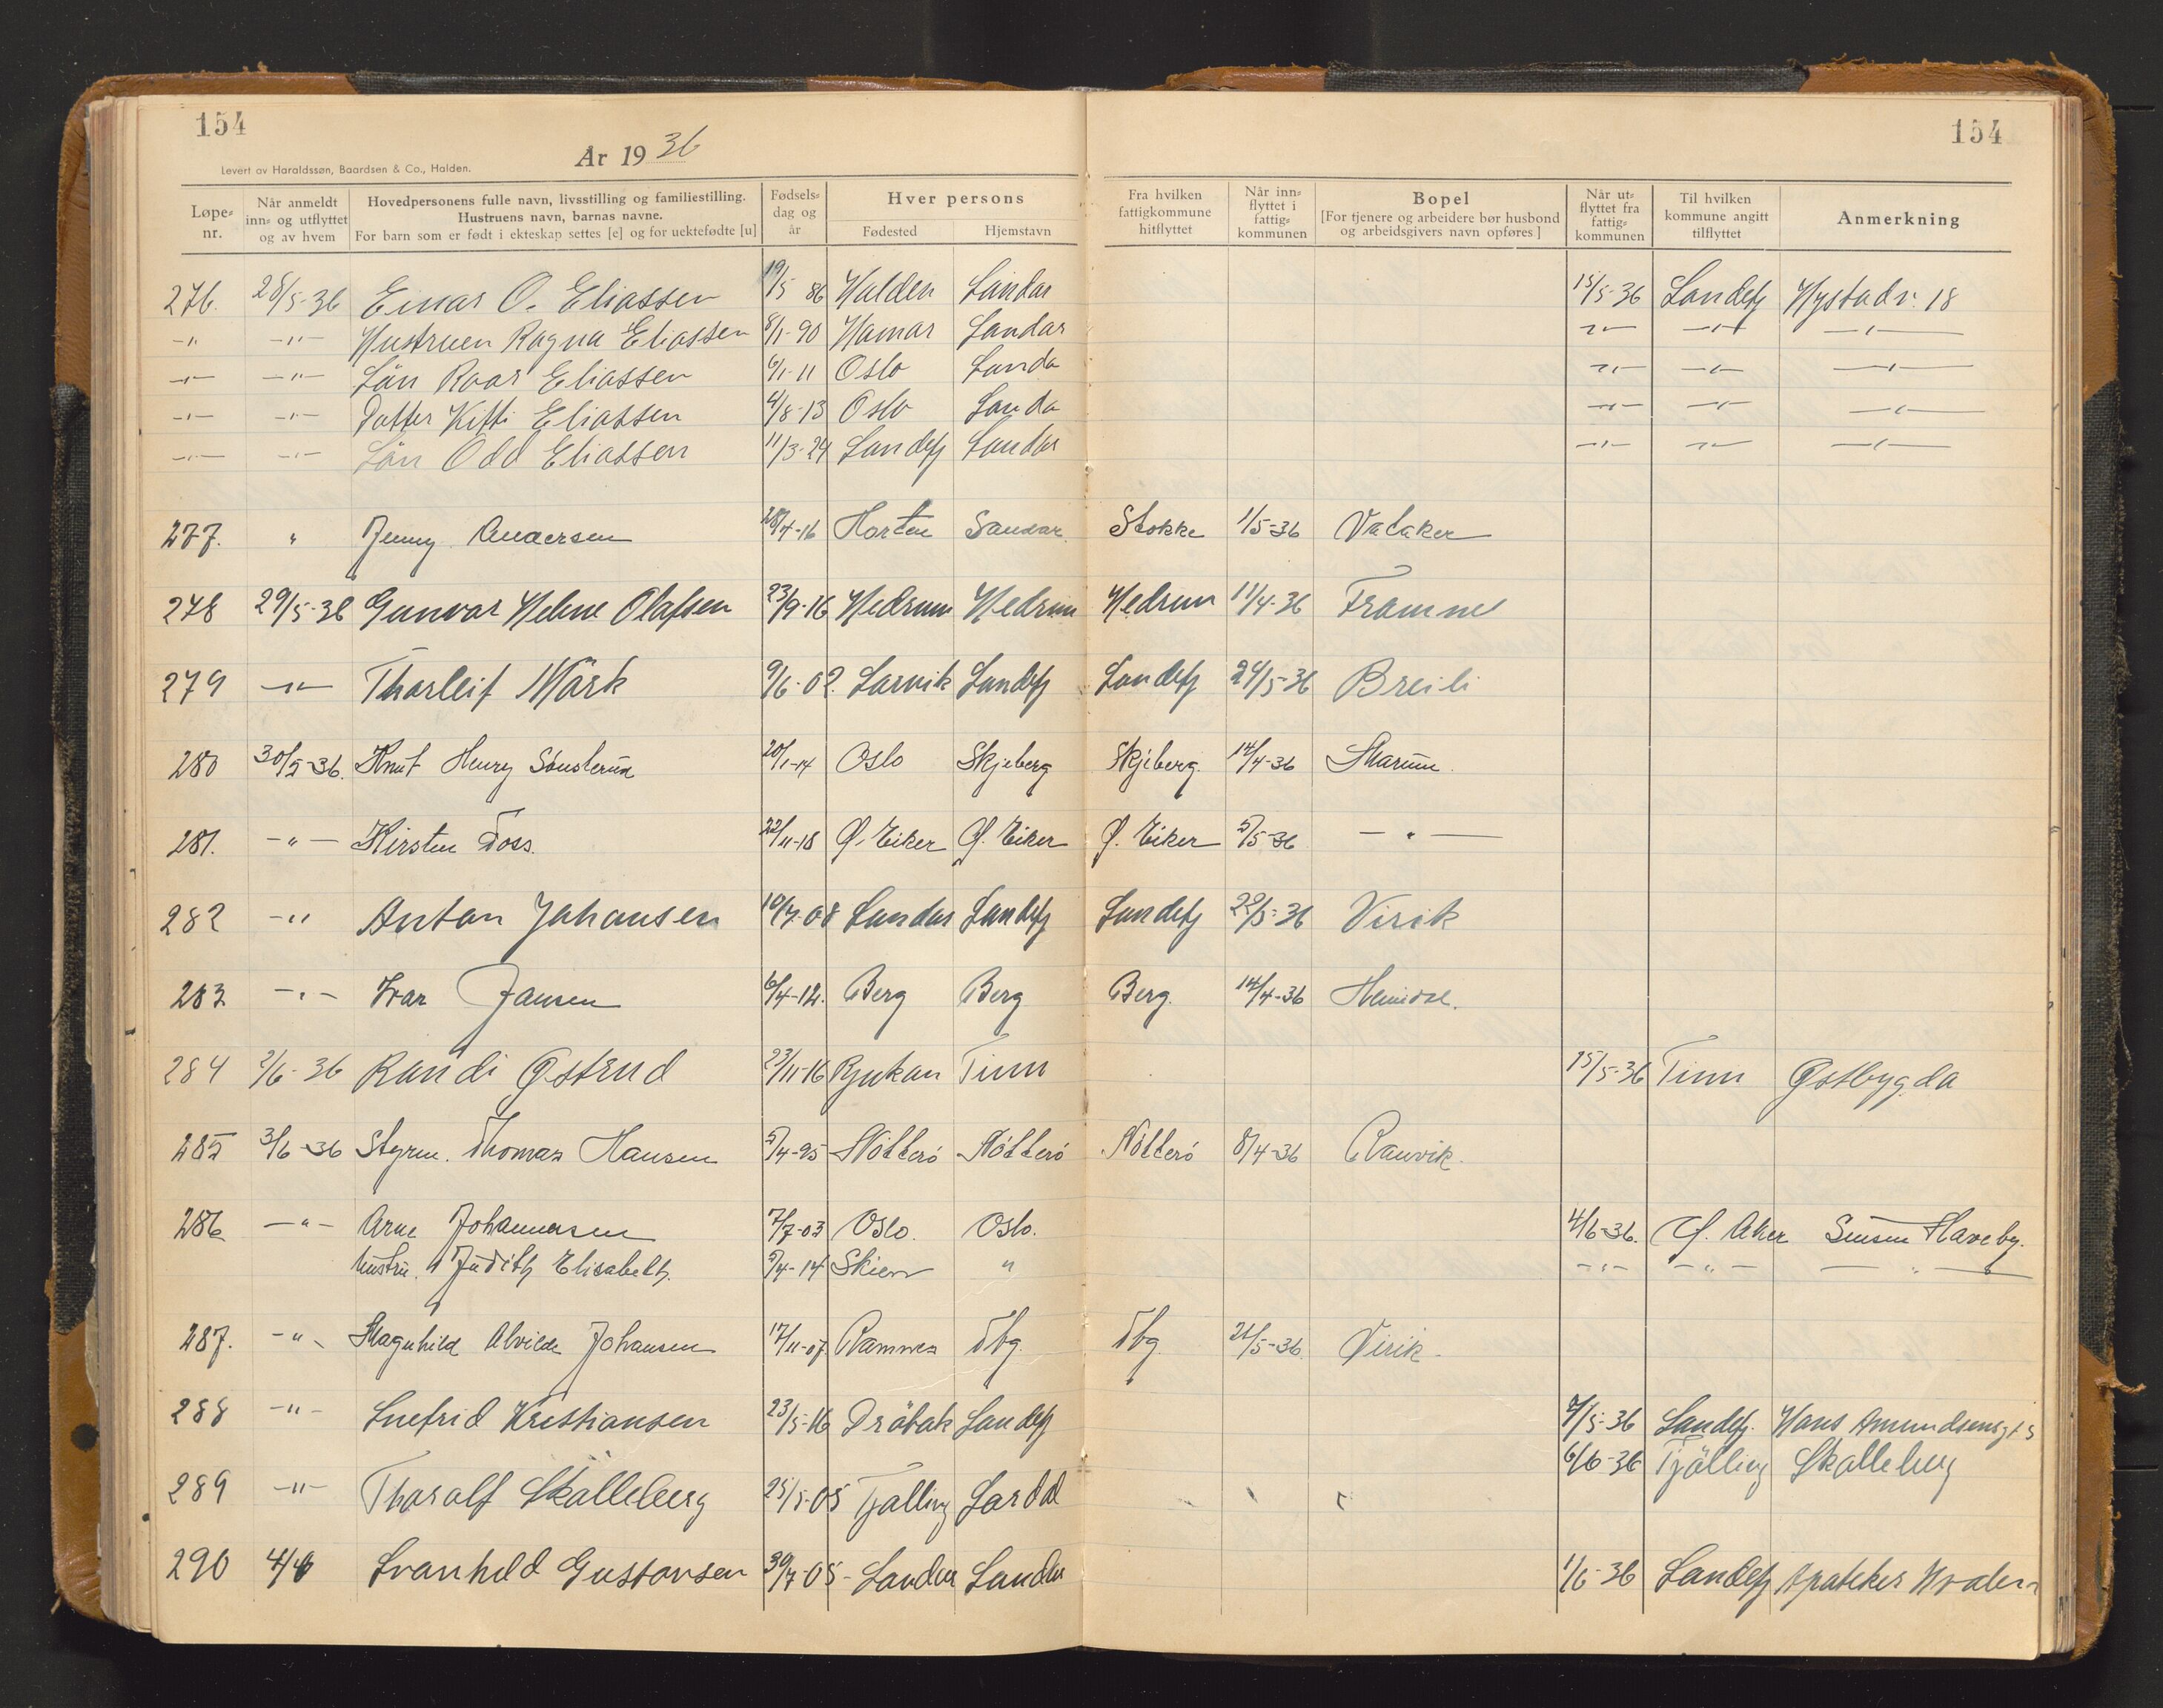 154
154
År 1936
Levert av Haraldssøn, Baardsen & Co., Halden.
Løpe-nr. Når anmeldt inn- og utflyttet og av hvem Hovedpersonens fulle navn, livsstilling og familiestilling. Hustruens navn, barnas navne. For barn som er født i ekteskap settes [e] og for uektefødte [u] Fødsels-dag og år Hver persons Fødested Hjemstavn Fra hvilken fattigkommune hitflyttet Når inn-flyttet i fattig-kommunen Bopel [For tjenere og arbeidere bør husbond og arbeidsgivers navn opføres] Når ut-flyttet fra fattig-kommunen Til hvilken kommune angitt tilflyttet Anmerkning
276. 28/5-36 Einar O. Eliassen 19/5 86 Halden Sandar 15/5-36 Sandefj Hystadv. 18
-"- -"- Hustruen Ragna Eliassen 8/1-90 Hamar Sandar -"- -"- -"-
-"- -"- Sön Roar Eliassen 6/1-11 Oslo Sanda -"- -"- -"-
-"- -"- Datter Kitti Eliassen 4/8-13 Oslo Sanda -"- -"- -"-
-"- -"- Sön Odd Eliassen 11/3-24 Sandefj Sandar -"- -"- -"-
277. " Jenny Andersen 28/4-16 Horten Sandar Stokke 1/5-36 Vataker
278 29/5-36 Gunvor Helene Olafsen 23/9-16 Hedrum Hedrum Hedrum 11/4-36 Framnes
279 -"- Thorleif Mörk 9/6-02. Larvik Sandefj Sandefj 24/5-36 Breili
280 30/5-36. Knut Henry 20/1-14 Oslo Skjeberg Skjeberg. 14/4-36
281. -"- Kirsten Foss. 22/11-18 Ø. Eiker Ø. Eiker Ø. Eiker 5/5-36 -"-
282 -"- Anton Johansen 10/7-08 Sandar Sandefj Sandefj 22/5-36 Virik
283 -"- Ivar Jansen 6/4-12. Berg Berg Berg. 14/4-36 Heimdal.
284 2/6-36 Randi Østrud 23/11-16 Rjukan Tinn 15/5-36 Tinn Østbygda
285 3/6-36 Styrm. Thomas Hansen 5/4-95 Nötterö Nötterö Nötterö 8/4-36 Ranvik.
286 -"- Arne Johannesen 7/7-03 Oslo. Oslo. 4/6-36. Ø. Aker Sinsen Haveby.
Hustru. Judith Elisabeth. 5/4-14 Skien " -"- -"- -"-
287. -"- Magnhild Alvilde Johansen 17/11-07 Ramnes Tbg. Tbg. 26/5-36. Virik.
288 -"- Snefrid Kristiansen 23/5-16 Dröbak Sandefj 7/5-36 Sandefj. Hans Amundsensgt 5
289 -"- Thoralf Skalleberg 25/5-05 Tjölling Sandar 6/6-36 Tjölling Skalleberg
290 4/6 Svanhild Gustavsen 30/7-05 Sandar Sandar 1/6-36 Sandefj Apoteker